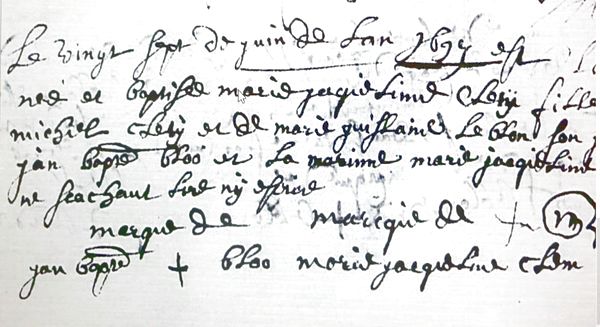 Le vingt sept de juin de Lan 1697 est
neé et baptisée marie jacqueline Clety fille
michiel Clety et de marie guislaine Le blon son
jan bapte bloo et La marinne marie jacqueline
ne scachant lire ny escrire
marque de marcque de
jan bapte + bloo marie jacqueline Clem